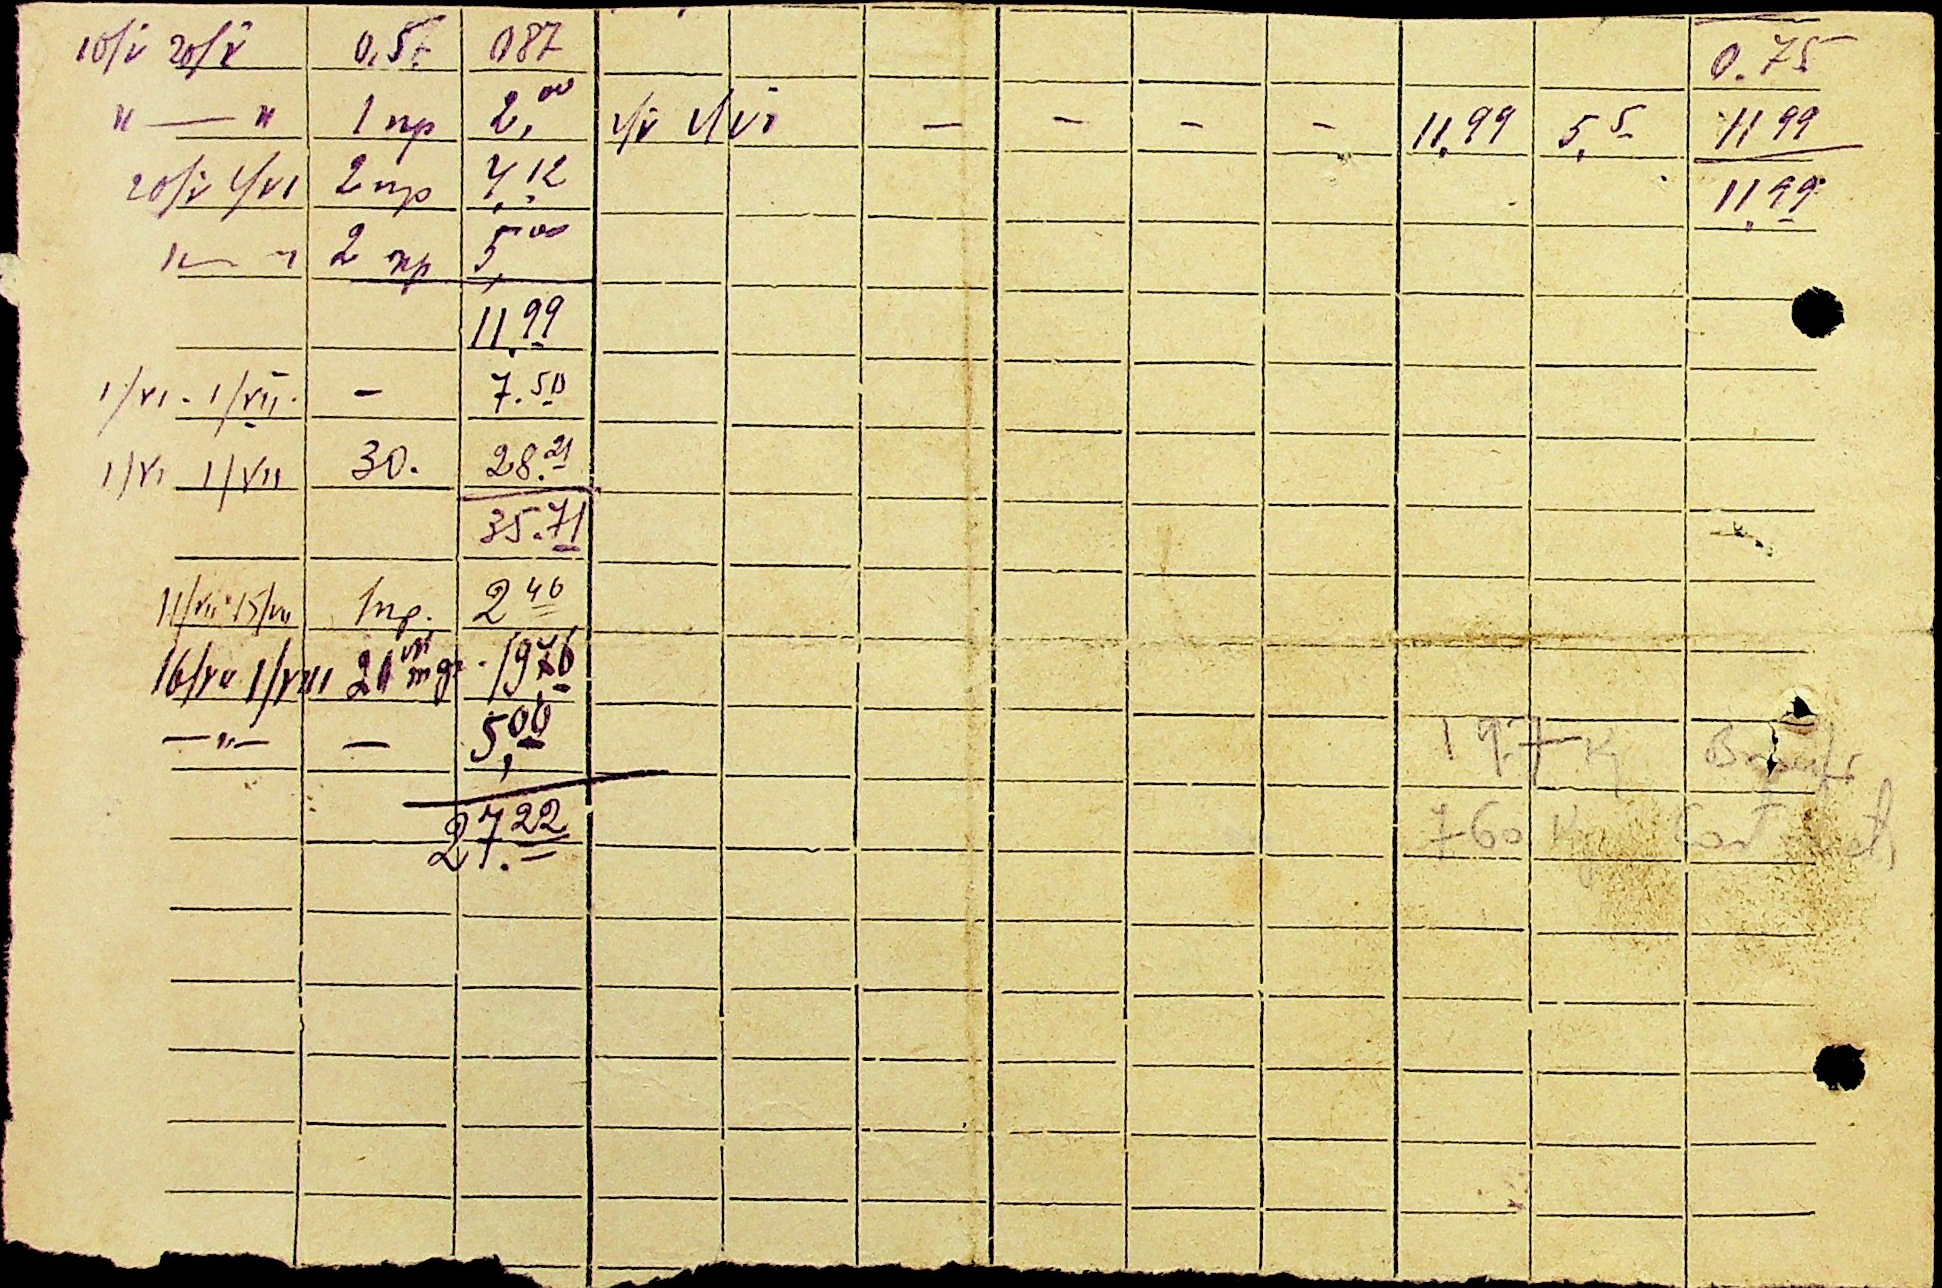 10/V 20/V 0,5 0 87 0.75
" — " 1 пр 2,00 1/V 1/VI — — — — 11,99 5,5 11 99
20/V 1/VI 2 пр 4,12 11,99
" — " 2 пр 5,00
11,99
1/VI. 1/VII. — 7.50
1/VI 1/VII 30. 28.21
35.71
11/VII 15/VII 1 пр. 2 40
16/VII 1/VIII 21 1976
— " — — 5,00
197 Kg
27.22
760 Kg